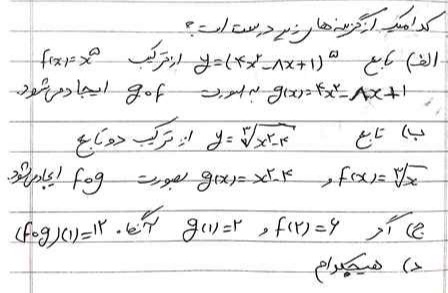 کدامیک از گزینه های زیر درست است؟
الف) تابع y=(۴x²-۸x+1)^۵ از ترکیب f(x)=x^۵
g(x)=۴x²-۸x+1 به صورت gof ایجاد می شود.
ب) تابع y=∛x²-۴ از ترکیب دو تابع
f(x)=∛x و g(x)=x²-۴ بصورت fog ایجاد می شود
ج) اگر f(۲)=۶ و g(1)=۲ آنگاه (fog)(1)=1۲
د) هیچکدام